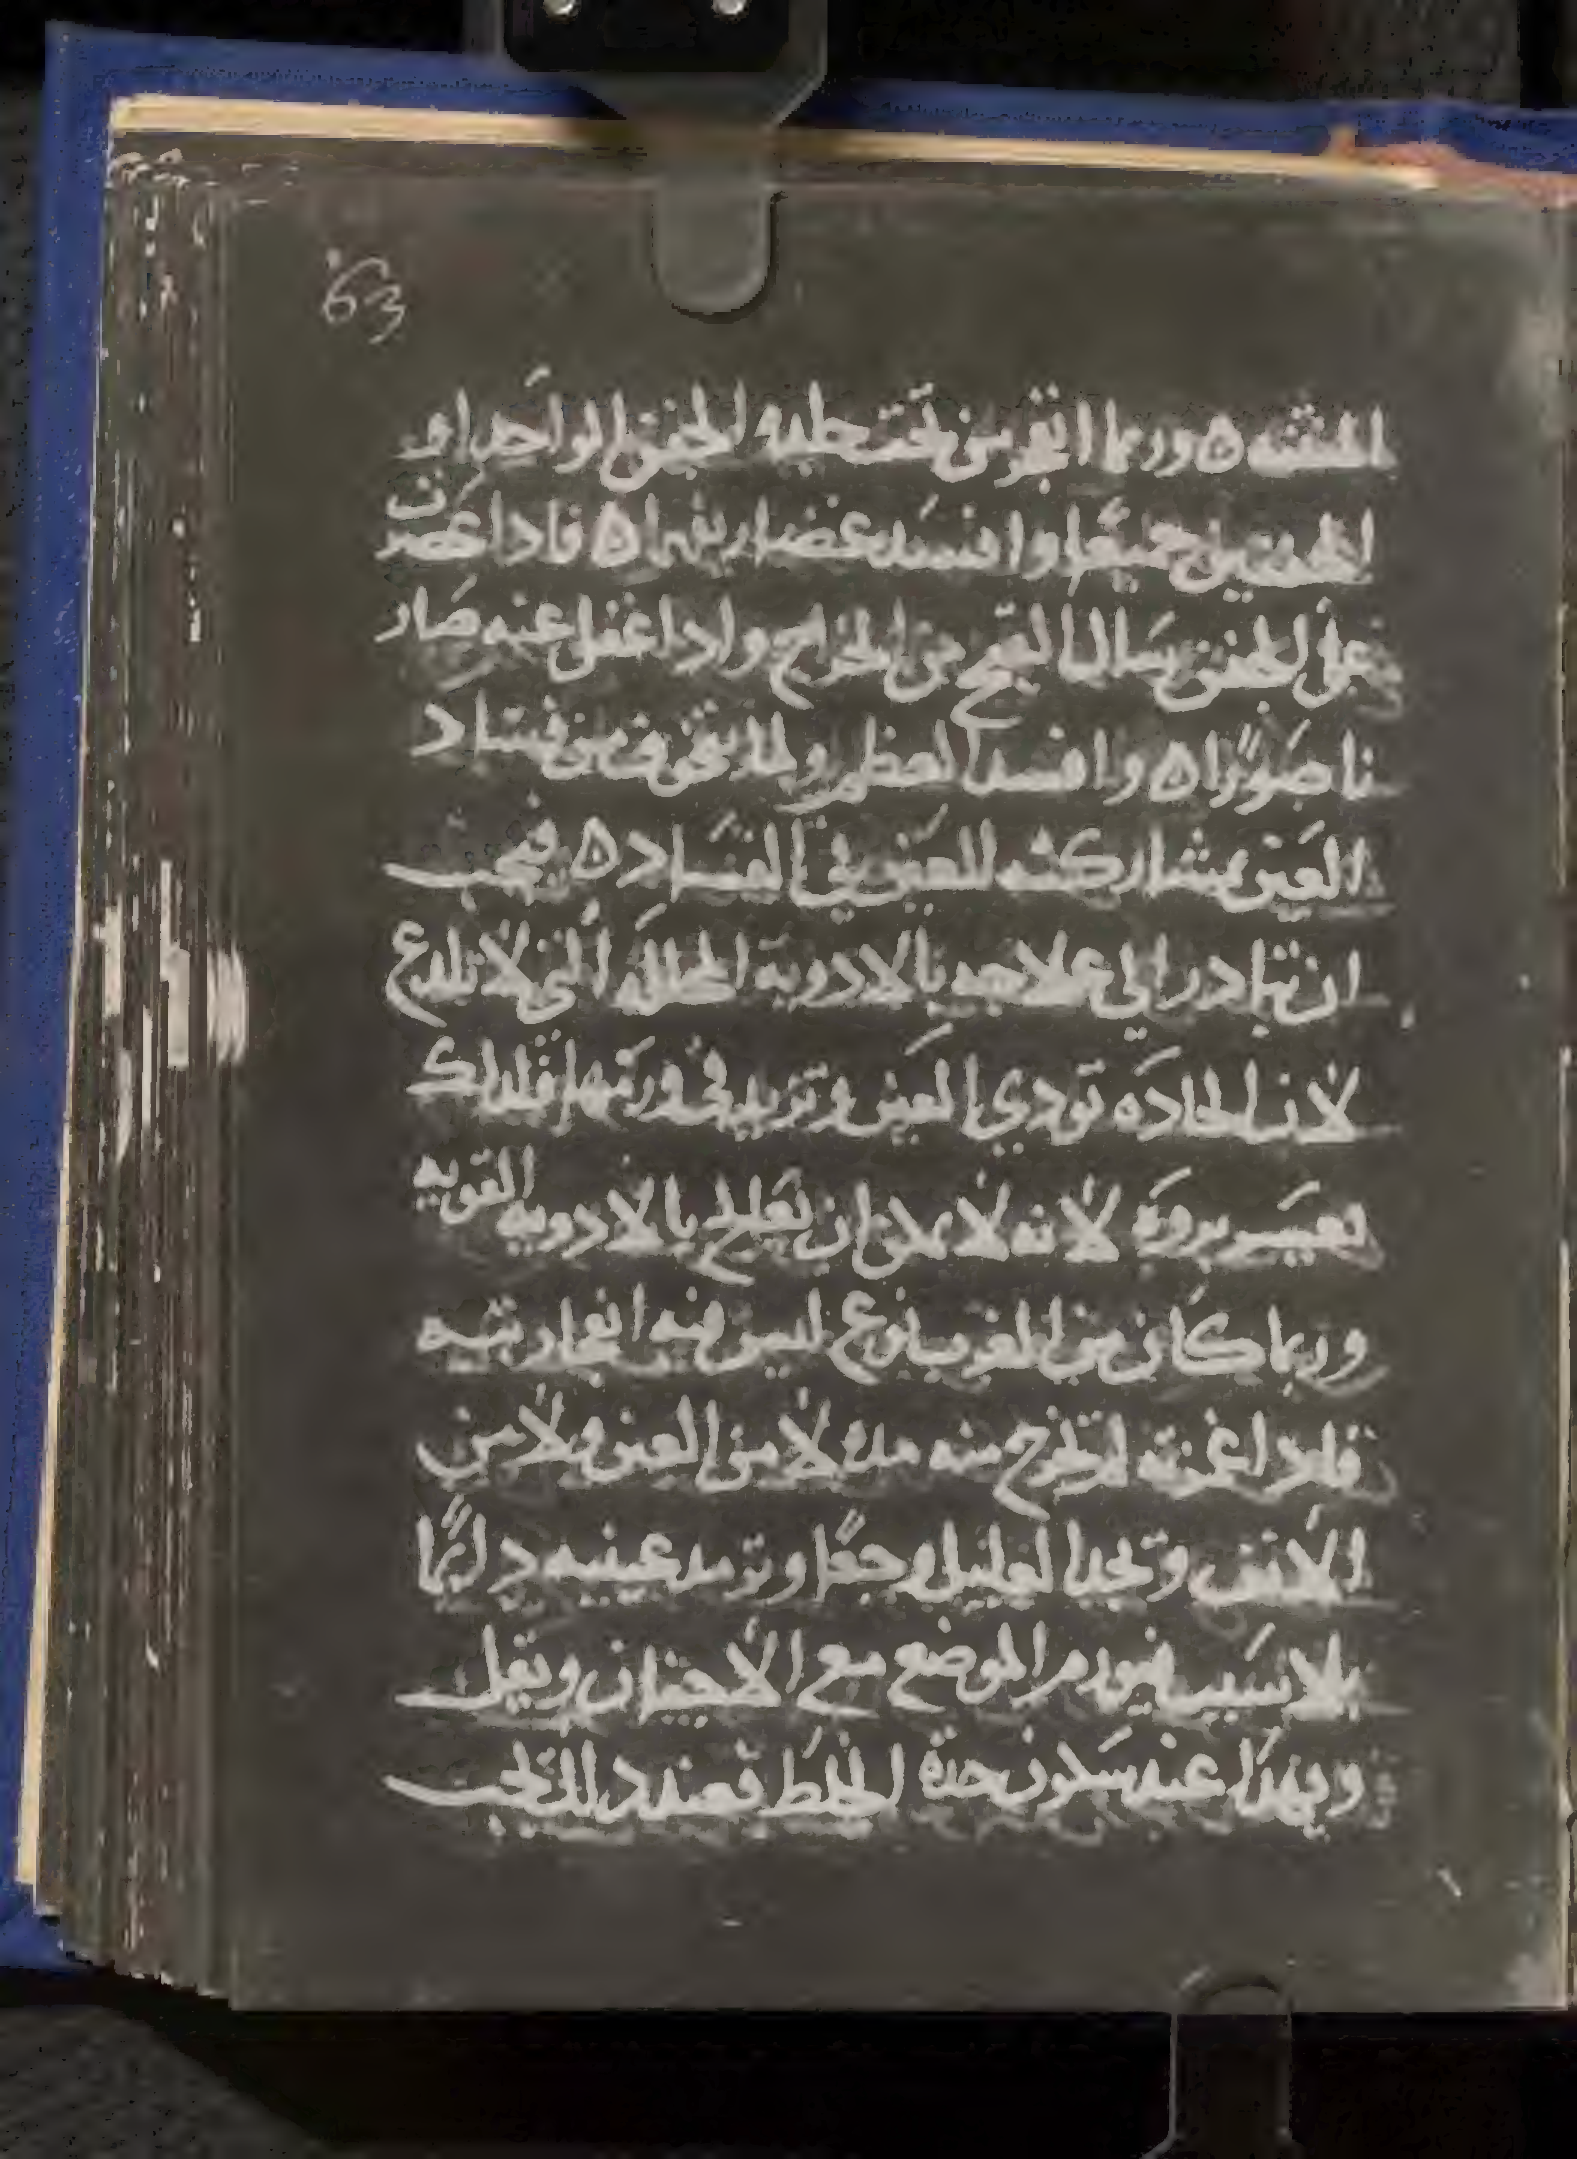 63
المنته ه وربما انفجر من تحت جلدة الجفن الواحد او
الجفنين جميعًا وافسد غضاريفها ه فاذا عصرت
على الجفن سال القيح من الخراج واذا غفل عنه صار
ناصورًا ه وافسد العظم ولا من فساد
العين بمشاركته للعين في الفساد ه فيجب
ان تبادر الي علاجه بالادوية المحلله التي لا تلدغ
لان الحاده تودي العين وتزيد في ورمها فلدلك
يعسر بروه لانه لا يمكن ان تعالج بالادويه القويه
وربما كان من الغرب نوع ليس فيه انفجار بتيه
فادا غمزته لم تخرج منه مده لا من العين ولا من
الانف وتجد العليل وجعًا وترمد عينيه دايمًا
بلا سبب فيورم الموضع مع الاجفان وتقل
ويهدا عند سكون حدة الخلط فعند دلك يجب